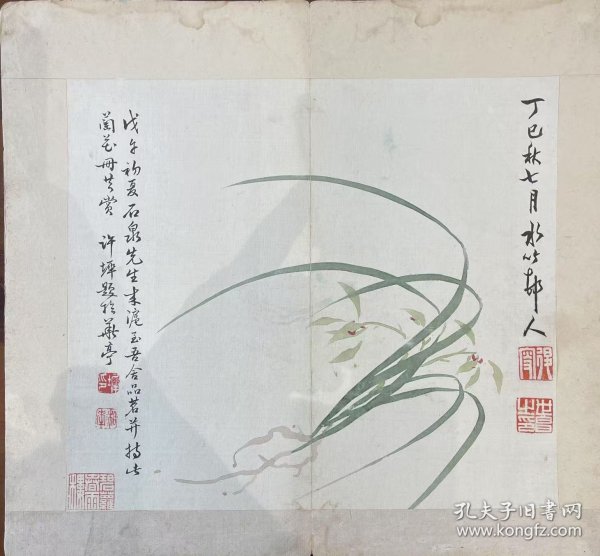 丁巳秋七月水竹邨人
戊午初夏石泉先生来滬至吾舍品茗并持此
蘭花冊共赏 许韡题於華亭
孔夫子旧書网
www.kongfz.com